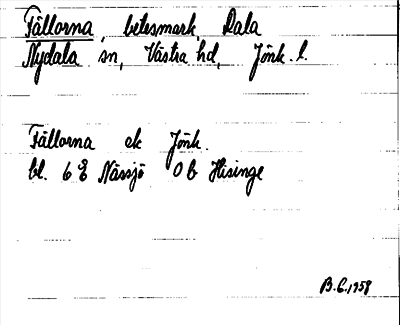 Fällorna, betesmark, Dala
Nydala sn, Västra hd, Jönk. l.
Fällorna ek Jönk.
bl. 6 E Nässjö 0 b Hisinge
B.E. 1958